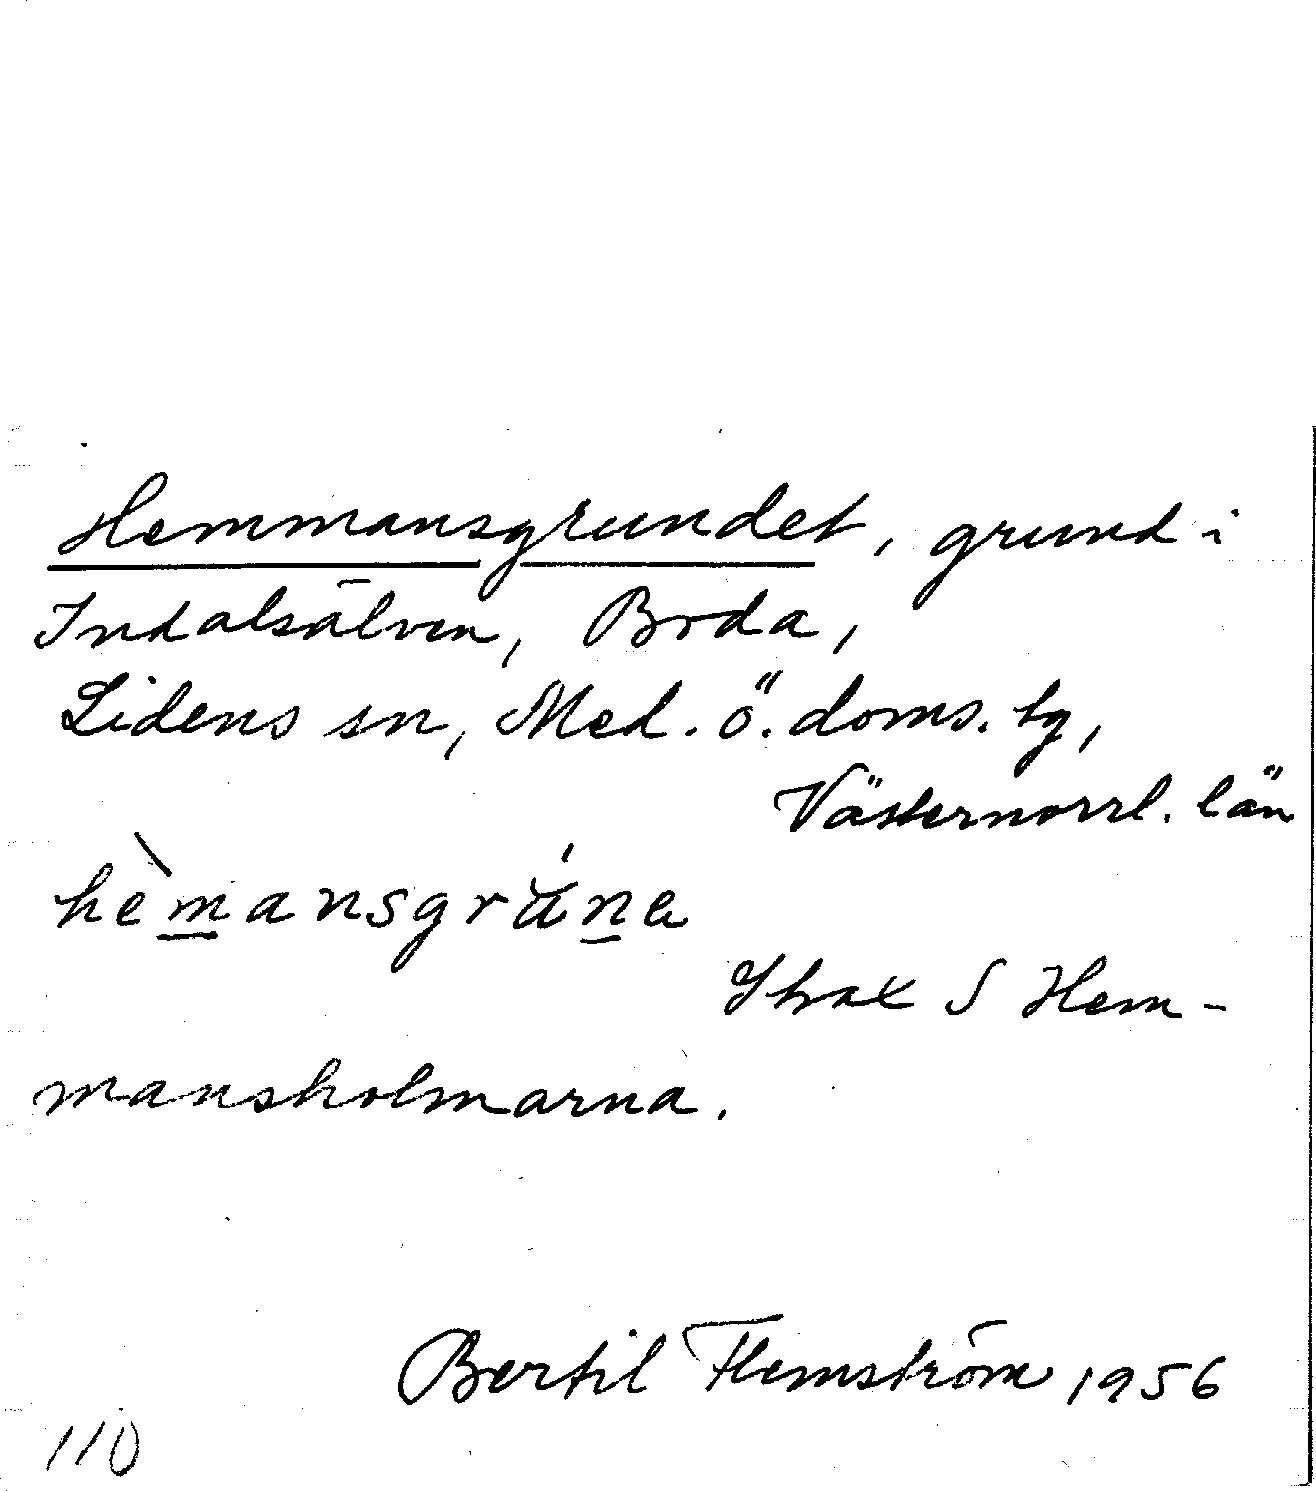 Hemmansgrundet, grund i
Indalsälven, Boda,
Lidens sn, Med. ö. doms. tg,
Västernorrl. län
hèmansgrú́na
Strax S Hem-
mansholmarna.
Bertil Flemström 1956
110